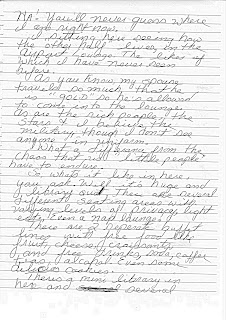 MA: You'll never guess where
I am right now.
I'm sitting here seeing how
the other half lives in the
airport lounge. The likes of
which I have never seen
before.
As you know, my spouse
travels so much, that he
is "gold" so he's allowed
to come into the lounge.
As are the rich people, the
stars & thankfully the
military though I don't see
anyone in uniform.
What a difference from the
chaos that we "little people"
have to endure.
So what's it like in here,
you ask. Well it's huge and
library quiet. There are several
different seating areas with
varying levels of privacy, light
etc, even a nap lounge.
There are 2 seperate buffet
lines with free food like
fruit, cheese, croissants,
and free drinks, soda, coffee
teas, alcohol even some
delicious cookies.
There's a mini library in
here and several